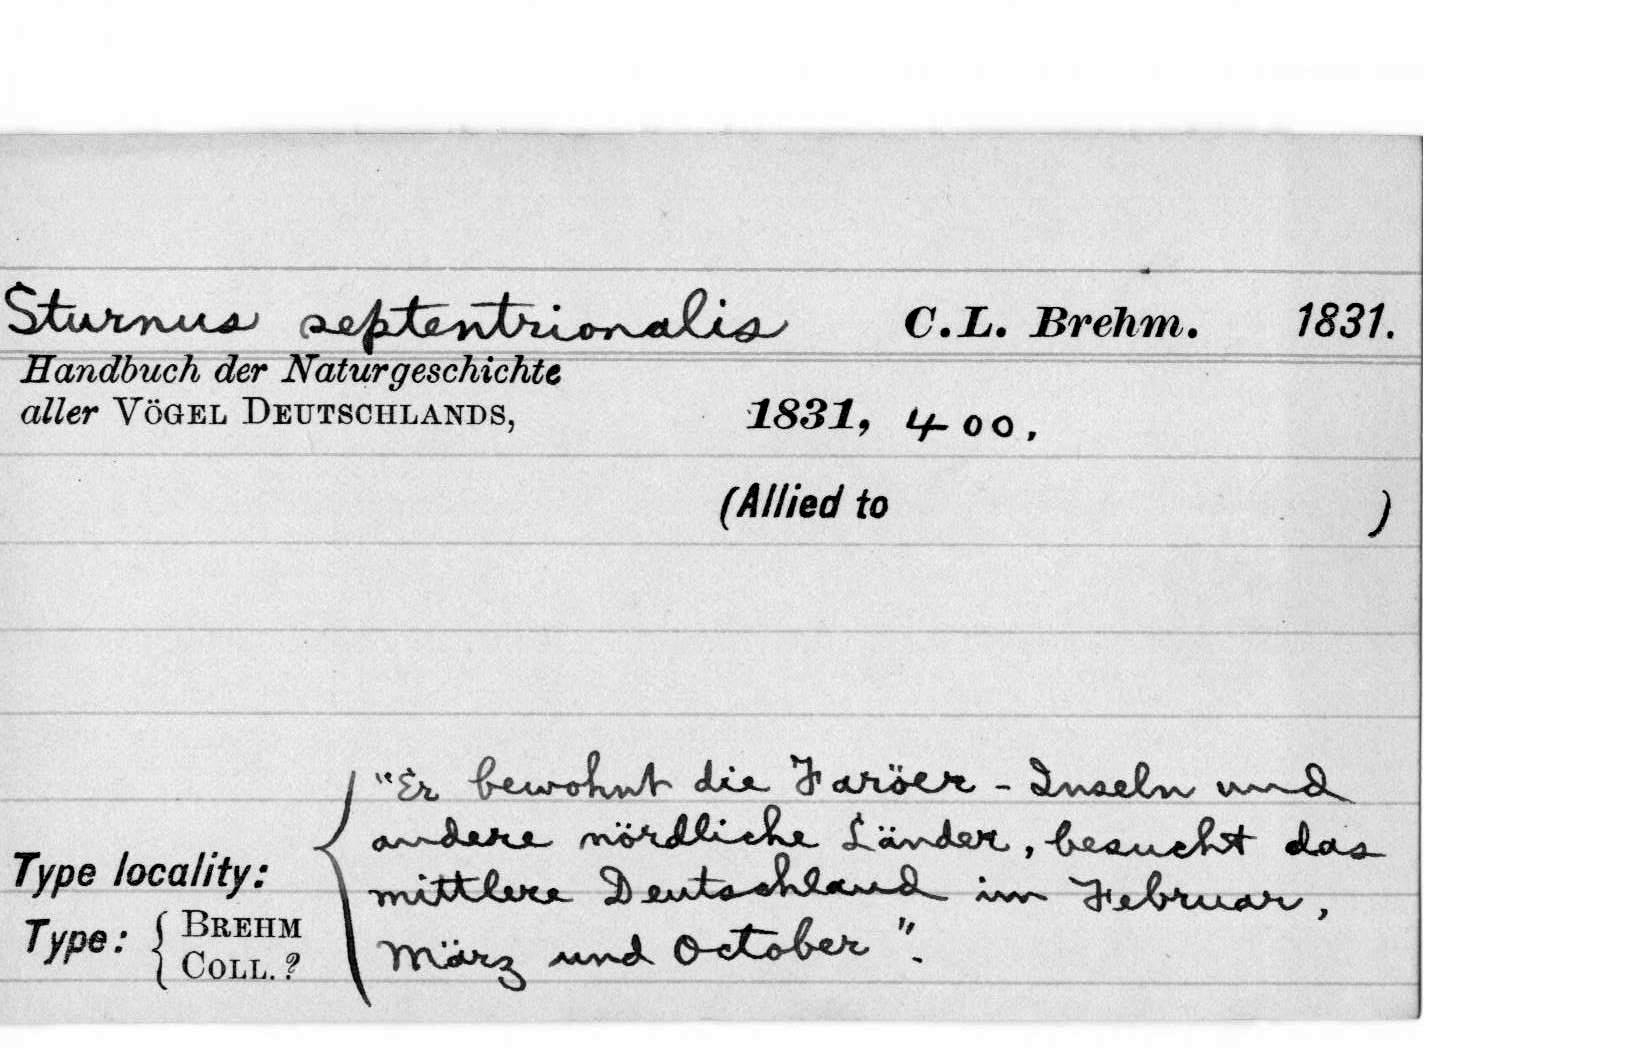 Sturnus septentrionalis C.L. Brehm. 1831.
Handbuch der Naturgeschichte
aller VÖGEL DEUTSCHLANDS, 1831, 400.
(Allied to )
"Er bewohnt die Faröer - Inseln und
andere nördliche Länder, besucht das
Type locality:
mittlere Deutschland im Februar,
Type: { BREHM COLL. ?
März und October".